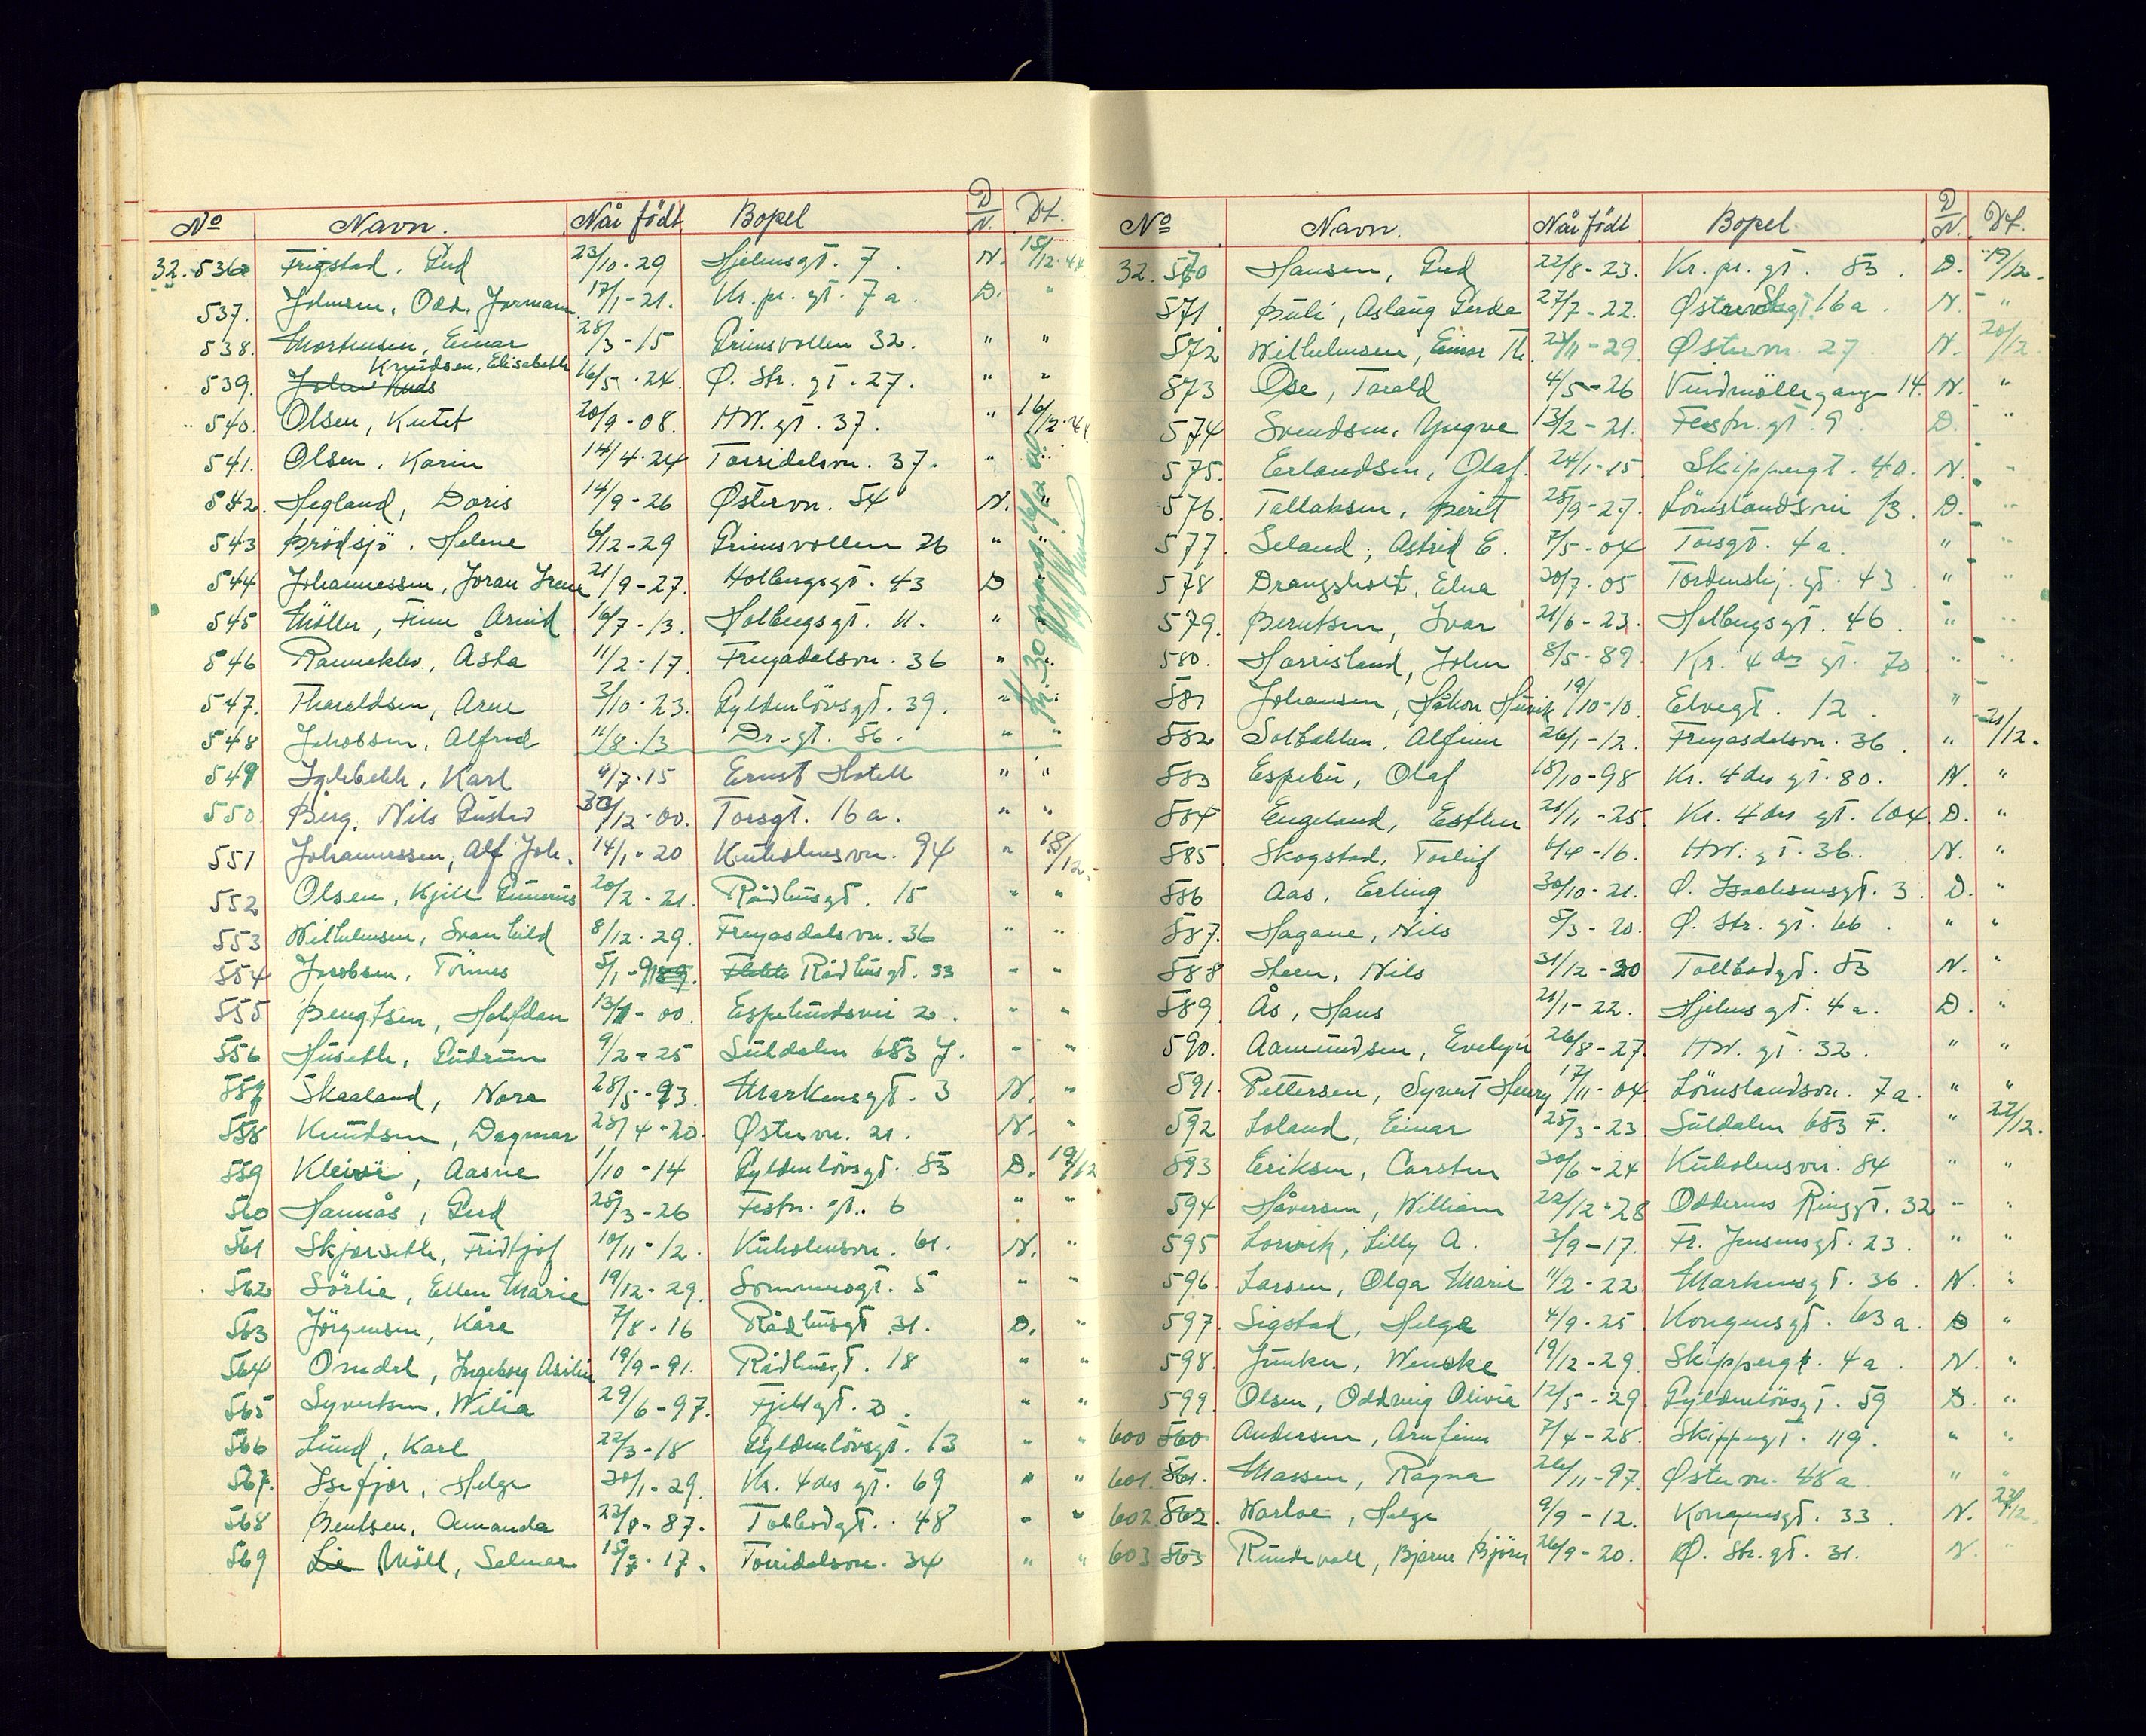 No Navn. Når födt Bopel D/N. Dt.
32.536 Frigstad. Gud 23/10-29 Hjelmsgt. 7. N. 15/12-44
537. Johnsen, Odd. Jormann 17/1-21. Kr. pr. gt. 7a. D. "
538. Mortensen, Einar 28/3-15 Grimsvollen 32. " "
539. Knudsen, Elisabeth 16/5-24 Ø. Str. gt. 27. " "
540. Olsen, Kutet 20/9-08. HW. gt. 37. " 16/12-44
541. Olsen, Karin 14/4-24 Torridalsvn. 37. " "
542. Hegland, Doris 14/9-26 Østervn. 54 N. "
543 Brödsjö, Helene 6/12-29 Grimsvollen 26 " "
544 Johannessen, Joran Irene 21/9-27. Holbergsgt. 43 D "
545 Möller, Finn Arvid 16/7-13. Holbergsgt. 11. " "
546 Ranneklev, Åsta 11/2-17. Freyadalsvn. 36 " "
547. Tharaldsen, Arne 3/10-23. Gyldenlövsgt. 39. " "
548 Jakobsen, Alfred 11/8-13 Dr-gt. 56. " "
549 Iglebekk, Karl 4/7-15 Ernst Hotell " "
550 Berg, Nils Gustav 30/12-00. Torsgt. 16a. " "
551 Johannessen, Alf Joh. 14/1-20 Kuholmsvn. 94 " 18/12.
552 Olsen, Kjell Gunerius 20/2-21. Rådhusgt. 15 " "
553 Wilhelmsen, Svanhild 8/12-29. Freyasdalsvn. 36 " "
554 Jacobsen, Tönnes 5/1-9 Rådhusgt. 33 " "
555 Bengtsen, Halfdan 13/1-00. Espelundsvei 2. " "
556 Huseth, Gudrun 9/2-25 Suldalen 653 J. " "
557 Skaaland, Nora 28/5-93. Markensgt. 3 N. "
558 Knudsen, Dagmar 23/4-20. Østervn. 21. N. "
559 Kleivi, Aasne 1/10-14 Gyldenlövsgt. 53 D. 19/12
560 Hannås, Gud 25/3-26 Festn. gt. 6 " "
561 Skjorseth, Fridtjof 10/11-12. Kuholmsvn. 61. N. "
562 Sörlie, Ellen Marie 19/12-29. Sommersgt. 5 " "
563 Jörgensen, Kåre 7/8-16 Rådhusgt 31. D. "
564 Omdal, Ingeborg Asilie 19/9-91. Rådhusgt. 18 " "
565 Syvertsen, Wilia 29/6-97. Fjellgt. 2. " "
566 Lund, Karl 22/3-18 Gyldenlövsgt. 13 " "
567. Isefjær, Helge 30/1-29. Kr. 4des gt. 69 " "
568 Bentsen, Amanda 23/8-87. Tollbodgt. 48 " "
569 Lie Möll, Selmer 15/7-17. Torridalsvn. 34 " "
No Navn. Når födt Bopel. D/N. Dt.
32. 570 Hansen, Gud 22/8-23. Kr. pr. gt. 53. D. 19/12.
571 Buli, Aslaug Gerda 27/7-22. 16a. N. "
572 Wilhelmsen, Einar Th. 23/11-29. Østervn. 27 N. 20/12
573 Ose, Torald 4/5-26 Vindmöllegang 14. N. "
574 Svendsen, Yngve 13/2-21. Festn. gt. 9 D. "
575. Erlandsen, Olaf. 24/1-15 Skippergt. 40. N. "
576. Tallaksen, Berit 25/9-27. Lömslandsvei 13. D. "
577. Leland, Astrid E. 7/5-04 Torsgt. 4a. " "
578 Drangsholt, Elna 30/7-05 Tordenskj. gt. 43 " "
579. Berntsen, Ivar 21/6-23. Holbergsgt. 46 " "
580. Harrisland, John 8/5-89. Kr. 4des gt. 70 " "
581 Johansen, Håkon 19/10-10. Elvegt. 12. "
582 Solbakken, Alfinn 26/1-12. Freyasdalsvn. 36. " 21/12.
583 Espelin, Olaf 18/10-98 Kr. 4des gt. 80. N. "
584 Engeland, Esther 21/11-25. Kr. 4des gt. 104. D. "
585. Skogstad, Torleif 6/4-16. HW. gt. 36. N. "
586 Aas, Erling 30/10-21. Ø. Isachsensgt. 3. D. "
587. Hagane, Nils 5/3-20. Ø. Str. gt. 66. " "
588 Steen, Nils 31/12-20 Tollbodgt. 53 N. "
589. Ås, Hans 21/1-22. Hjelmsgt. 4a. D. "
590. Aamundsen, Evelyn 26/8-27. HW. gt. 32. " "
591. Pettersen, Syvert Henry 17/11-04. Lömslandsvn. 7a. " "
592 Loland, Einar 25/3-23 Suldalen 653 F. " 22/12.
593 Eriksen, Carsten 30/6-24 Kuholmsvn. 84 " "
594 Håversen, William 22/12-28 Oddernes Ringgt. 32 " "
595 Lorvik, Lilly A. 3/9-17. Fr. Jensensgt. 23. " "
596. Larsen, Olga Marie 11/2-22. Markensgt. 36. N. "
597. Sigstad, Helge 4/9-25 Kongensgt. 63a. D "
598. Junker, Wenske 19/12-29. Skippergt. 4a. N. "
599. Olsen, Oddveig Olivia 12/5-29. Gyldenlövsgt. 59 D. "
600 560 Andersen, Arnfinn 7/4-28. Skippergt. 119. " "
601. 561. Massen, Ragna 26/11-97. Østervn. 48a " "
602. 562. Warloe, Helge 9/9-12. Kongensgt. 33. N. 23/12.
603 563 Rundevall, Bjarne Björn 26/9-20. Ø. Str. gt. 31. N. "